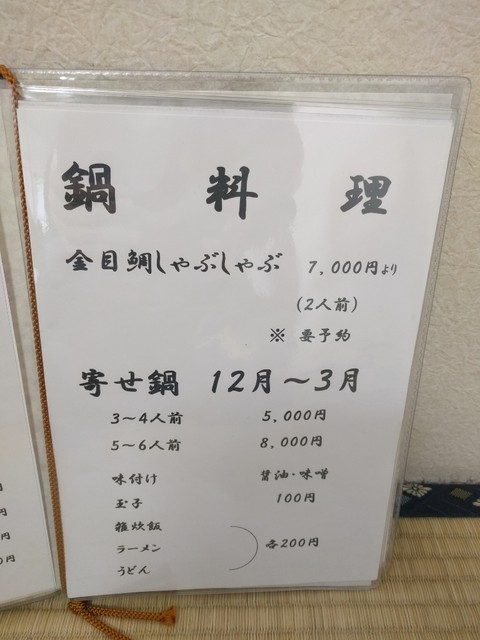 鍋料理
金目鯛しゃぶしゃぶ 7,000円より
(2人前)
※ 要予約
寄せ鍋 12月～3月
3～4人前 5,000円
5～6人前 8,000円
味付け 醤油・味噌
玉子 100円
雑炊飯
ラーメン 各200円
うどん